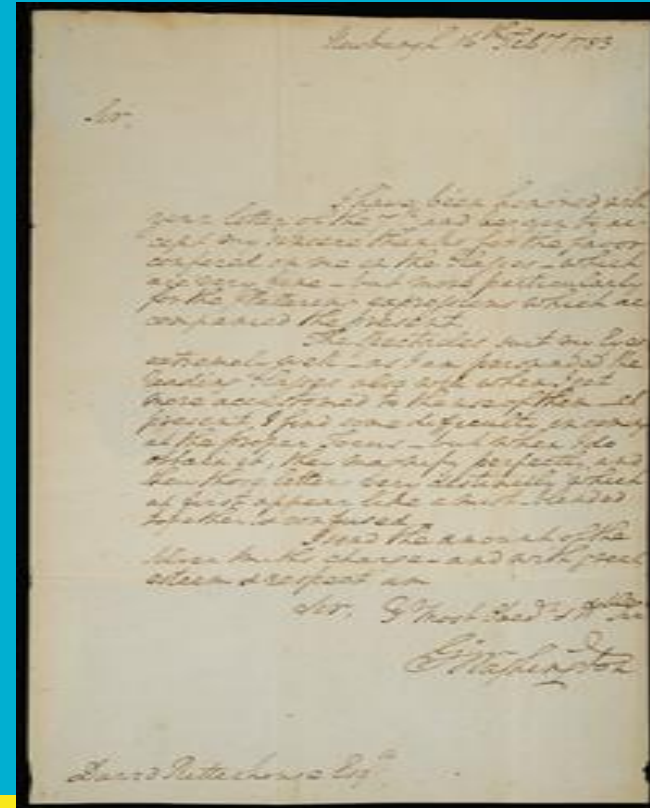 Newburgh 16th Feby 1783
Sir,
I have been honored with
your letter of the and beg you to ac-
cept my sincere thanks for the favor
conferred on me in the Glasses – which
are very fine – but more particularly
for the flattering expressions which ac-
companied the present
The Spectacles suit my Eyes
extremely well – as I am persuaded the
reading Glasses also will when I get
more accustomed to the use of them – At
present, I find some difficulty in coming
at the proper Focus – but when I do
obtain it, they magnify perfectly, and
shew those letters very distinctly which
at first appear like a mist – blended
together & confused.
I send the amount of the
charge – and with great
esteem & respect am
Sir, Yr Most Obedt
Go Washington
David Rittenhouse Esqr